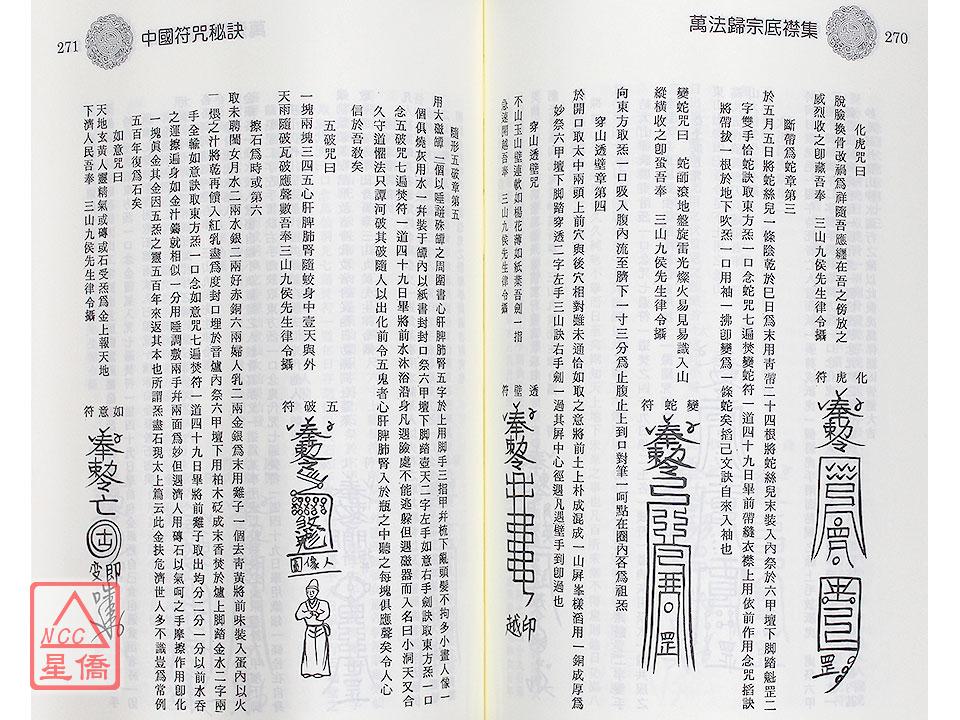 萬法歸宗底襟集
270
化虎咒曰
脫臉換骨改禍爲祥隨吾應纏在吾之傍放之
威烈收之卽藏吾奉 三山九侯先生律令攝
化虎符
斷帶爲蛇章第三
於五月五日將蛇絲兒一條陰乾於巳日爲末用靑帶二十四根將蛇絲兒末裝入內祭於六甲壇下脚踏魁罡二
字雙手恰蛇訣取東方炁一口念蛇咒七遍焚變蛇符一道四十九日畢前帶縫衣襟上用依前作用念咒搯訣
將帶拔一根於地下吹炁一口用袖一拂卽變爲一條蛇矣搯己文訣自來入袖也
變蛇咒曰 蛇蒒滾地盤旋雷光燦火易見易識入山
縱橫收之卽蟄吾奉 三山九侯先生律令攝
變蛇符
向東方取炁一口吸入腹內流至臍下一寸三分爲止腹止上到口對筆一呵點在圈內各爲祖炁
穿山透壁章第四
於開口取太中兩頭上前穴與後穴相對雖未通恰如取之意將前土上朴成混成一山屛峯樣滔用一銅成厚爲
妙祭六甲壇下脚踏穿透二字左手三山訣右手劍一過其屛中心徑遇凡遇壁手到卽過也
穿山透壁咒
不山玉山壁連軟如楊花薄如紙葉吾劍一指
急速開越吾奉 三山九侯先生律令攝
透壁符
越印
中國符咒秘訣
271
隨形五破章第五
用大磁罈一個以唾
一罈之周圍書心肝脾肺腎五字於上用脚手三指甲幷梳下亂頭髮不拘多小畫人像一
個俱燒灰用水一幷裝于罈內以紙書封封口祭六甲壇下脚踏壹天二字左手如意右手劍訣取東方炁一口
念五破咒七遍焚符一道四十九日畢將前水沐浴沿身凡遇險處不能逃躱但遇磁器而入名曰小洞天又合
久守道懼法只譚河破其破隨人以出化前令五鬼者心肝脾肺腎入於瓶之中聽之每塊俱應聲矣令人心
信於吾敎矣
五破咒曰
一塊兩塊三四五心肝脾肺腎隨蛟身中壹天與外
天雨隨破瓦破應聲數吾奉三山九侯先生律令攝
五破符
人像圖
擦石爲時或第六
取未聘閨女月水二兩水銀二兩好赤銅六兩婦人乳二兩金銀爲末用雞子一個去靑黃將前味裝入蛋內以火
煨之汁將乾再傾入紅乳盡爲度封口埋於音爐內祭六甲壇下用柏木砭成末香焚於爐上脚踏金水二字兩
手全輪如意訣取東方炁一口念如意咒七遍焚符一道四十九日畢將前雞子取出均分二分一分以前水吞
之運擦遍身如金汁鑄就相似一分用唾調敷兩手幷兩面爲妙但遇濟人用磚石以氣呵之手摩擦作用卽化
一塊眞金其金因五炁之靈五百年來返其本也所謂炁盡石現太上篇云此金扶危濟世人多不識豈爲常例
五百年復爲石矣
如意咒曰
天地玄黃人靈精氣或磚或石受炁爲金上報天地
下濟人民吾奉 三山九侯先生律令攝
如意符
NCC
星僑